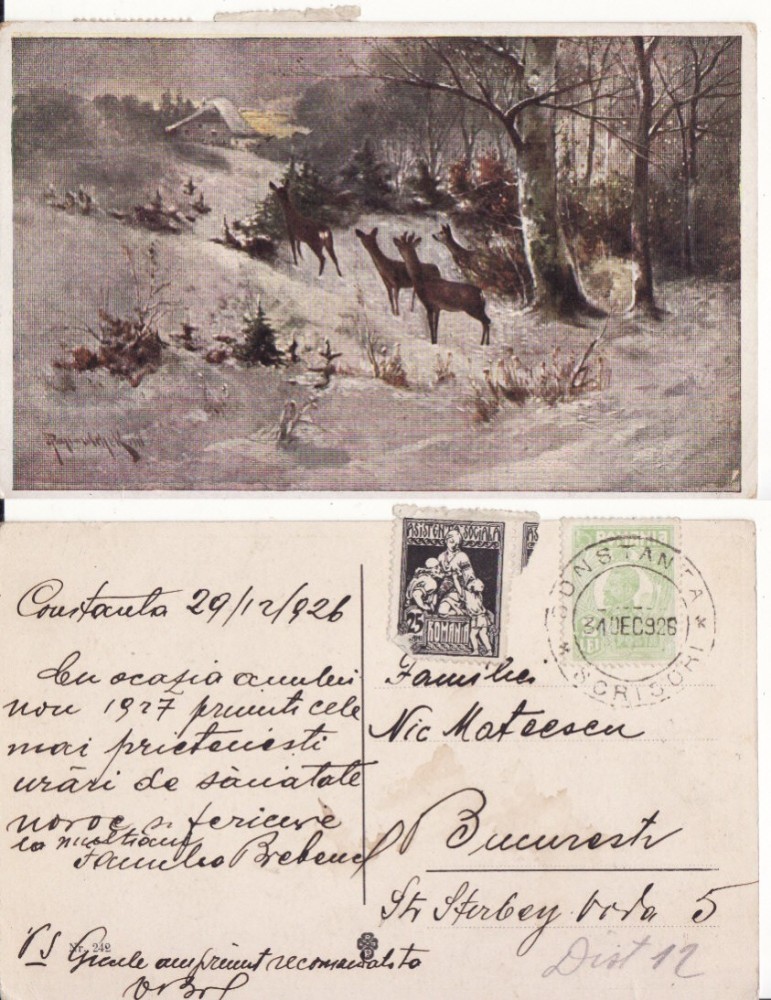 ASISTENTA SOCIALA
25
ROMANIA
CONSTANTA
31 DEC 926
SCRISORI
Constanta 29/12/926
Cu ocazia anului
nou 1927 primiti cele
mai prietenesti
urări de sănatate
noroc si fericire
la multi ani
Familia
Familiei
Nic Mateescu
Bucuresti
Str Sterbey Voda 5
Dist 12
Nr. 242
PS am primit recomandata